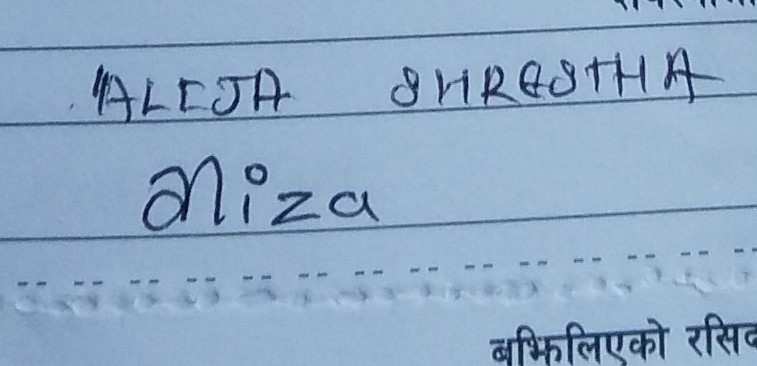 ALIJA SHRESTHA
Aliza
बुझिलिएको रसिद